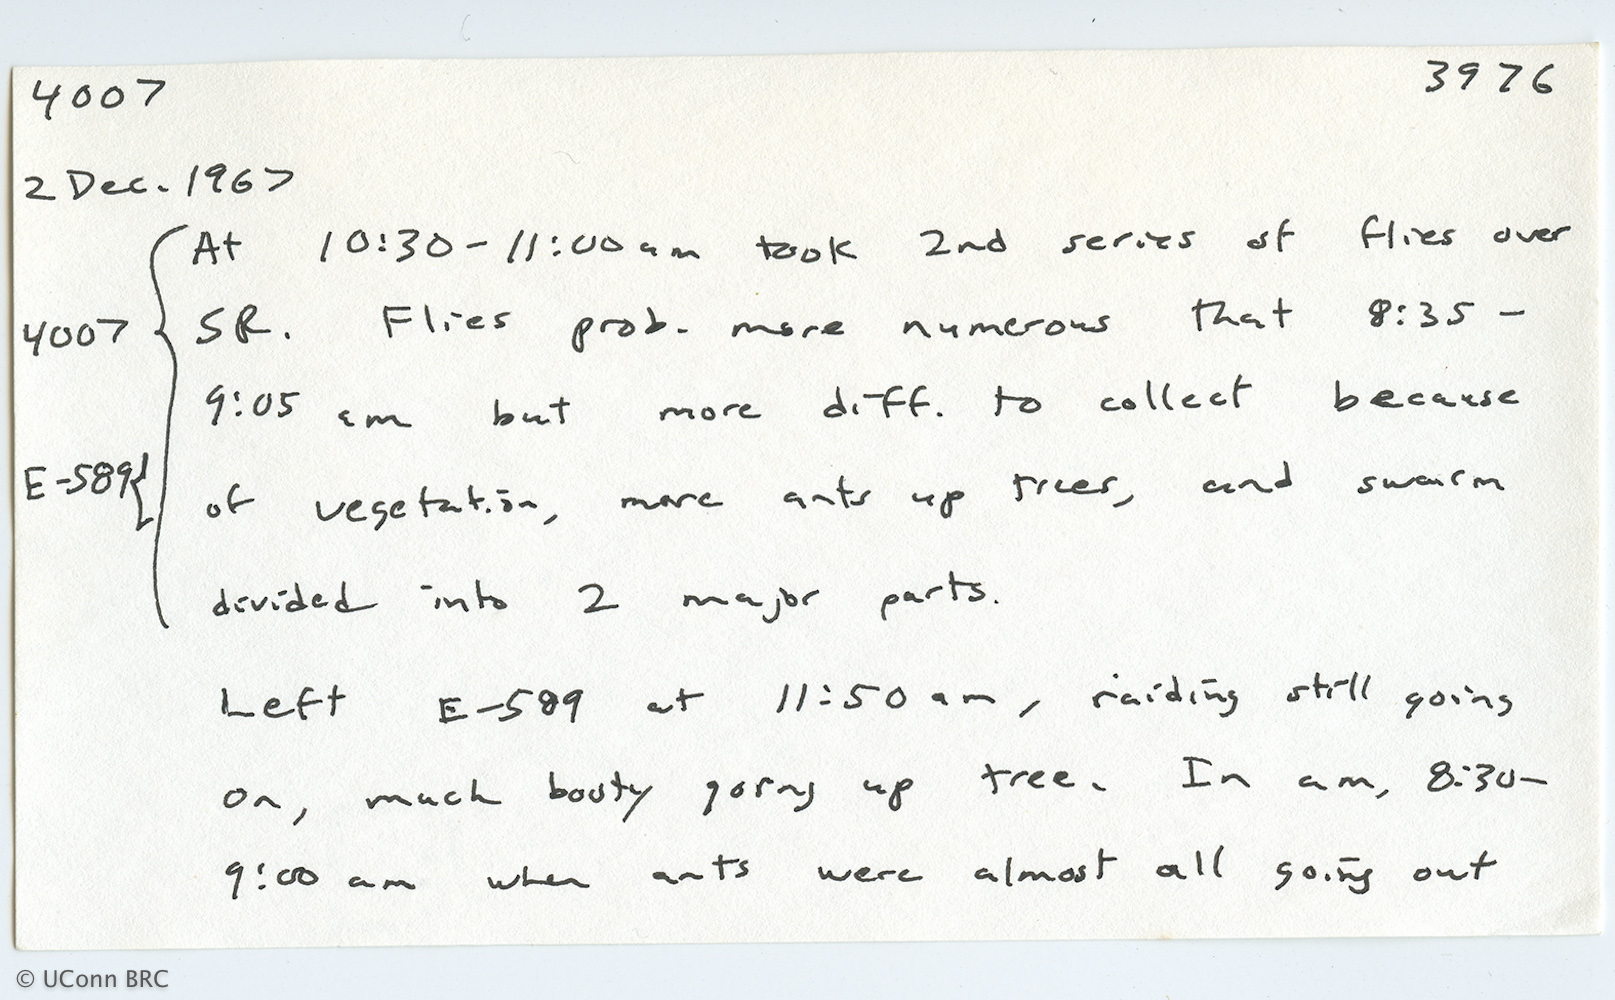 4007 3976
2 Dec. 1967
At 10:30-11:00 am took 2nd series of flies over
4007 SR. Flies prob. more numerous that 8:35-
9:05 am but more diff. to collect because
E-589 of vegetation, more ants up trees, and swarm
divided into 2 major parts.
Left E-589 at 11:50 am, raiding still going
on, much booty going up tree. In am, 8:30-
9:00 am when ants were almost all going out
© UConn BRC